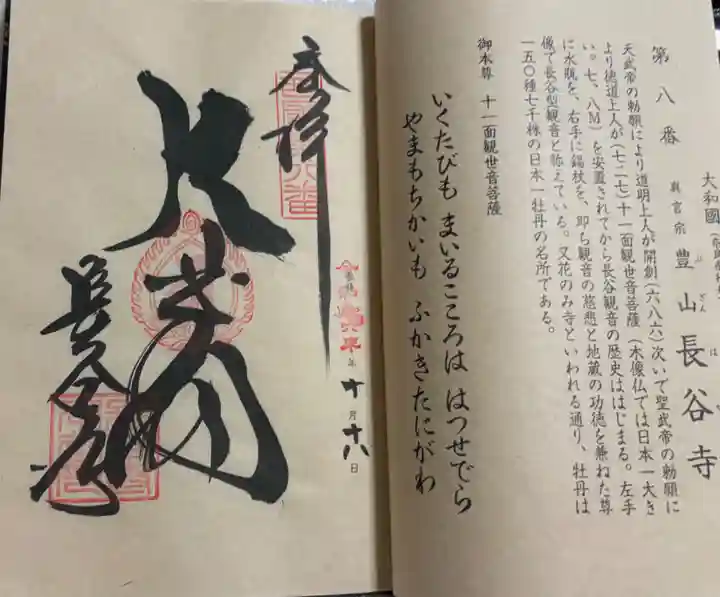 第八番
大和國
真言宗 豊山長谷寺
ぶざん は
天武帝の勅願により道明上人が開創(六八六)次いで聖武帝の勅願に
より徳道上人が(七二七)十一面観世音菩薩(木像仏では日本一大き
い。七、八M)を安置されてから長谷観音の歴史ははじまる。左手
に水瓶を、右手に錫杖を、即ち観音の慈悲と地蔵の功徳を兼ねた尊
像で長谷型観音と称えている。又花のみ寺といわれる通り、牡丹は
一五〇種七千株の日本一牡丹の名所である。
御本尊 十一面観世音菩薩
いくたびも まいるこころは はつせでら
やまもちかいも ふかきたにがわ
奉拝
年十月十八日
大悲閣
長谷寺